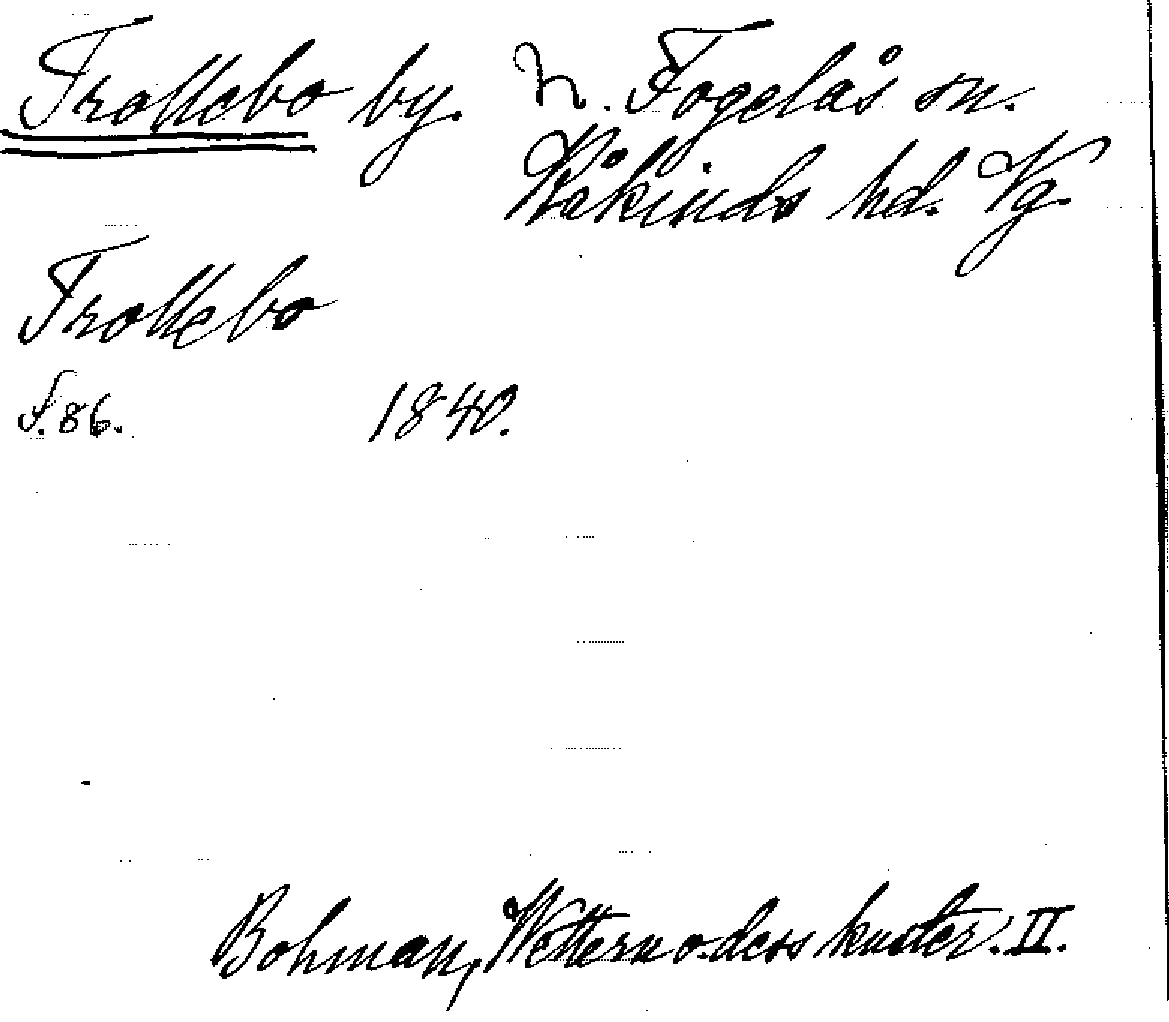 Trollebo by. N. Fogelås sn.
Wåkinds hd. Vg.
Trollebo
S. 86. 1840.
Bohman, Wettern o. dess kuster. II.